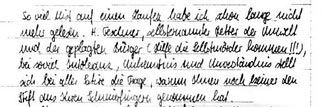 So viel Mist auf einen Haufen habe ich schon lange nicht
mehr gelesen. H. Textner, selbsternannter Retter der Umwelt
und der geplagten Bürger (Hilfe die Elbstrände kommen!!!),
bei soviel Intoleranz, Unkenntnis und Unverständnis stellt
sich bei allen bitte die Frage, warum Ihnen noch keiner den
Stift aus Ihren Schmierfingern genommen hat.